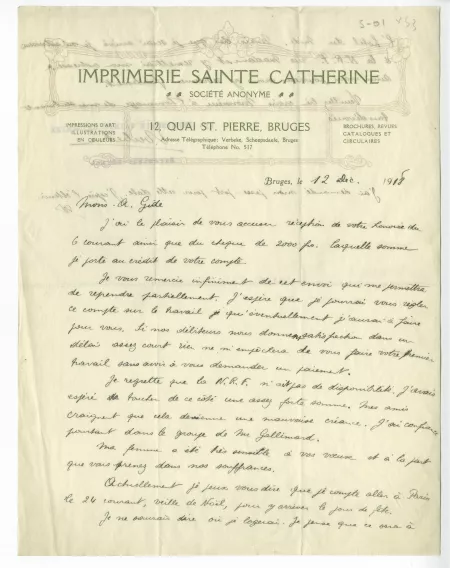 IMPRIMERIE SAINTE CATHERINE
SOCIÉTÉ ANONYME
IMPRESSIONS D'ART
ILLUSTRATIONS
EN COULEURS
12, QUAI ST. PIERRE, BRUGES
Adresse Télégraphique: Verbeke, Scheepsdaele, Bruges
Téléphone No. 517
BROCHURES, REVUES
CATALOGUES ET
CIRCULAIRES
Bruges, le 12 Dec. 1918
Mons. A. Gide
J'ai le plaisir de vous accuser réception de votre honorée du
6 courant ainsi que du chèque de 2000 frs. laquelle somme
je porte au crédit de votre compte.
Je vous remercie infiniment de cet envoi qui me permettra
de reprendre partiellement. J'espère que je pourrai vous régler
ce compte sur le travail que j'eventuellement j'aurai à faire
pour vous. Si nos débiteurs nous donnent satisfaction dans un
délai assez court rien ne m'empêchera de vous faire votre premier
travail sans avoir à vous demander un paiement.
Je regrette que la N.R.F. n'ait pas de disponibilités. J'avais
espéré toucher de ce côté une assez forte somme. Mes amis
craignent que cela devienne une mauvaise créance. J'ai confiance
pourtant dans le groupe de Mr Gallimard.
Ma femme a été très sensible à vos vœux et à la part
que vous prenez dans nos souffrances.
Actuellement je peux vous dire que je compte aller à Paris
le 24 courant, veille de Noël, pour y arriver le jour de fête.
Je ne saurais dire où je logerai. Je pense que ce sera à